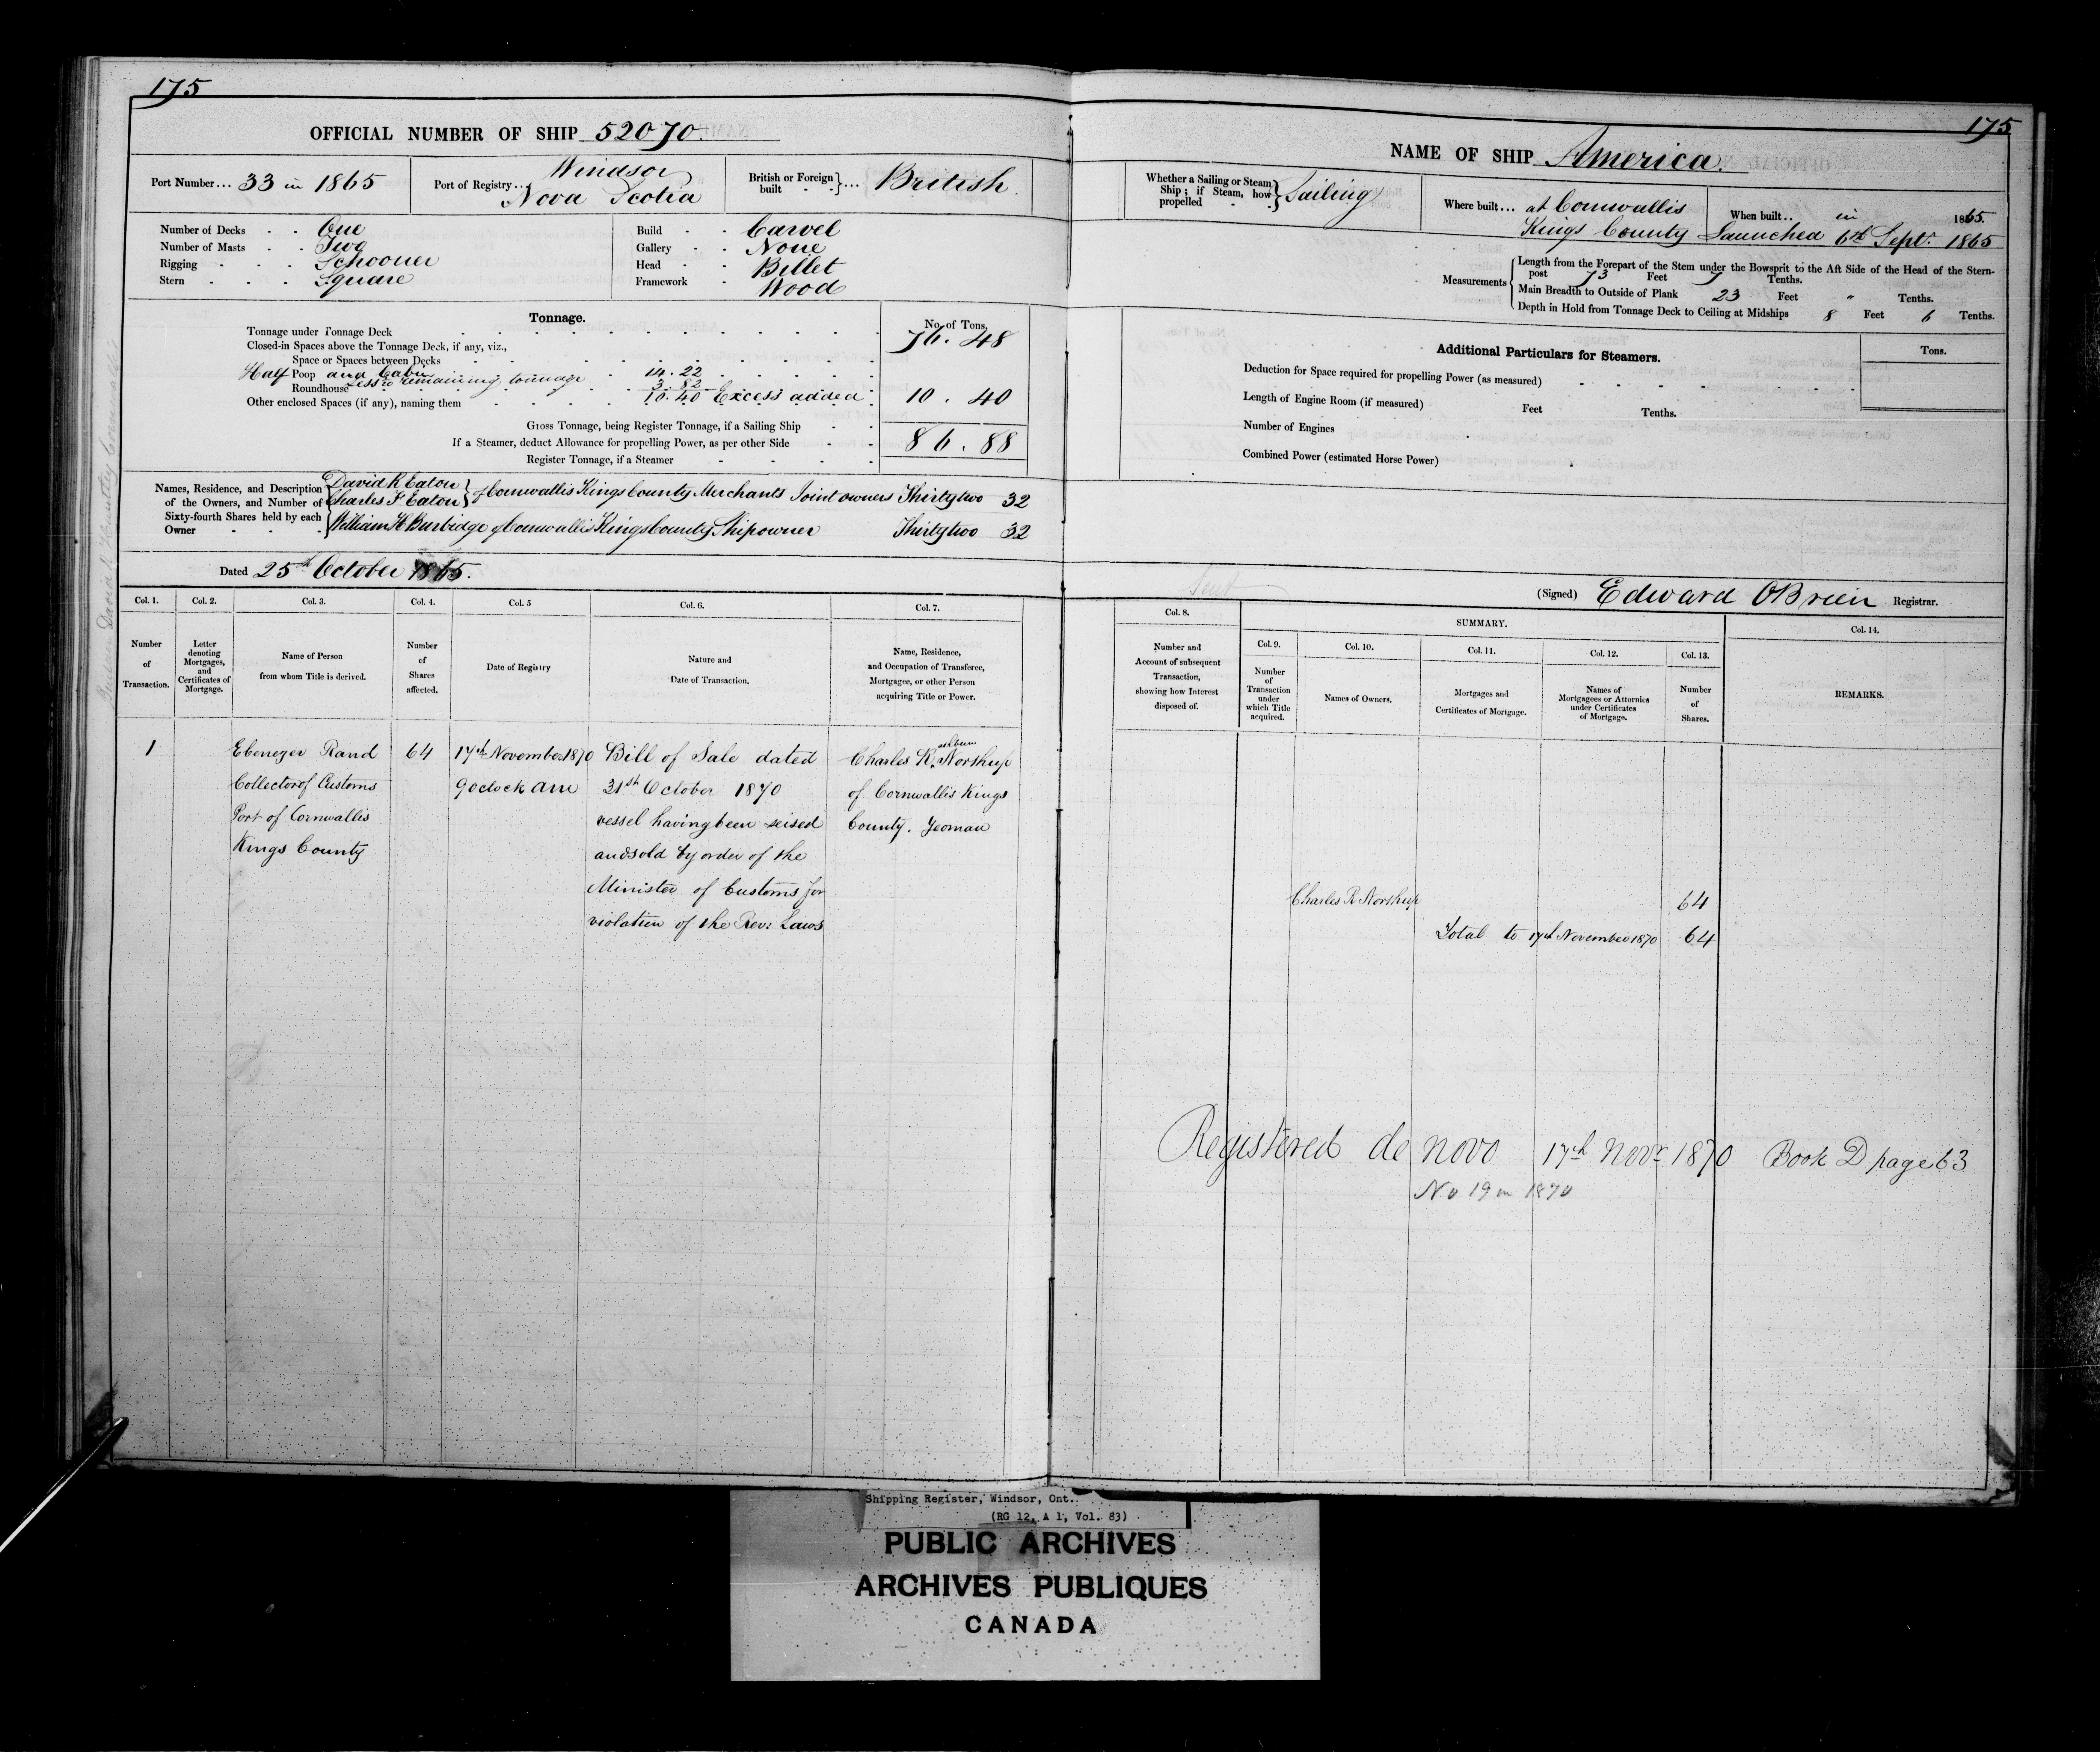 175
OFFICIAL NUMBER OF SHIP 52070
Port Number... 33 in 1865
Port of Registry.. Windsor
Nova Scotia
British or Foreign built ... British
Number of Decks One
Number of Masts Two
Rigging Schooner
Stern Square
Build Carvel
Gallery None
Head Billet
Framework Wood
Tonnage.
No. of Tons.
Tonnage under Tonnage Deck 76.48
Closed-in Spaces above the Tonnage Deck, if any, viz.,
Space or Spaces between Decks
Half Poop and Cabin 14.22
Roundhouse Less remaining tonnage 3.82
Other enclosed Spaces (if any), naming them 10.40 Excess added 10.40
Gross Tonnage, being Register Tonnage, if a Sailing Ship 86.88
If a Steamer, deduct Allowance for propelling Power, as per other Side
Register Tonnage, if a Steamer
Names, Residence, and Description
of the Owners, and Number of
Sixty-fourth Shares held by each
Owner
David R Eaton
Charles F Eaton } of Cornwallis Kings County Merchants Joint owners Thirty two 32
William H Burbidge of Cornwallis Kings County Shipowner Thirty two 32
Dated 25th October 1865.
Col. 1.
Number
of
Transaction.
Col. 2.
Letter
denoting
Mortgages,
and
Certificates of
Mortgage.
Col. 3.
Name of Person
from whom Title is derived.
Col. 4.
Number
of
Shares
affected.
Col. 5
Date of Registry
Col. 6.
Nature and
Date of Transaction.
Col. 7.
Name, Residence,
and Occupation of Transferee,
Mortgagee, or other Person
acquiring Title or Power.
1
Ebenezer Rand
Collector of Customs
Port of Cornwallis
Kings County
64
17th November 1870
9 oclock am
Bill of Sale dated
31st October 1870
vessel having been seised
and sold by order of the
Minister of Customs for
violation of the Rev: Laws
Charles R. Northup
of Cornwallis Kings
County. Yeoman
175
NAME OF SHIP America.
Whether a Sailing or Steam
Ship; if Steam, how
propelled
Sailing
Where built... at Cornwallis
Kings County
When built.. in 1865.
Launched 6th Sept. 1865
Measurements
Length from the Forepart of the Stem under the Bowsprit to the Aft Side of the Head of the Stern-
post 73 Feet 7 Tenths.
Main Breadth to Outside of Plank 23 Feet " Tenths.
Depth in Hold from Tonnage Deck to Ceiling at Midships 8 Feet 6 Tenths.
Additional Particulars for Steamers.
Tons.
Deduction for Space required for propelling Power (as measured)
Length of Engine Room (if measured) Feet Tenths.
Number of Engines
Combined Power (estimated Horse Power)
(Signed) Edward OBrien Registrar.
Col. 8.
Number and
Account of subsequent
Transaction,
showing how Interest
disposed of.
SUMMARY.
Col. 9.
Number
of
Transaction
under
which Title
acquired.
Col. 10.
Names of Owners.
Col. 11.
Mortgages and
Certificates of Mortgage.
Col. 12.
Names of
Mortgagees or Attornies
under Certificates
of Mortgage.
Col. 13.
Number
of
Shares.
Col. 14.
REMARKS.
Charles R Northup 64
Total to 17th November 1870 64
Registered de novo 17th Novr 1870 Book D page 63
No 19 in 1870
Shipping Register, Windsor, Ont..
(RG 12, A 1, Vol. 83)
PUBLIC ARCHIVES
ARCHIVES PUBLIQUES
CANADA